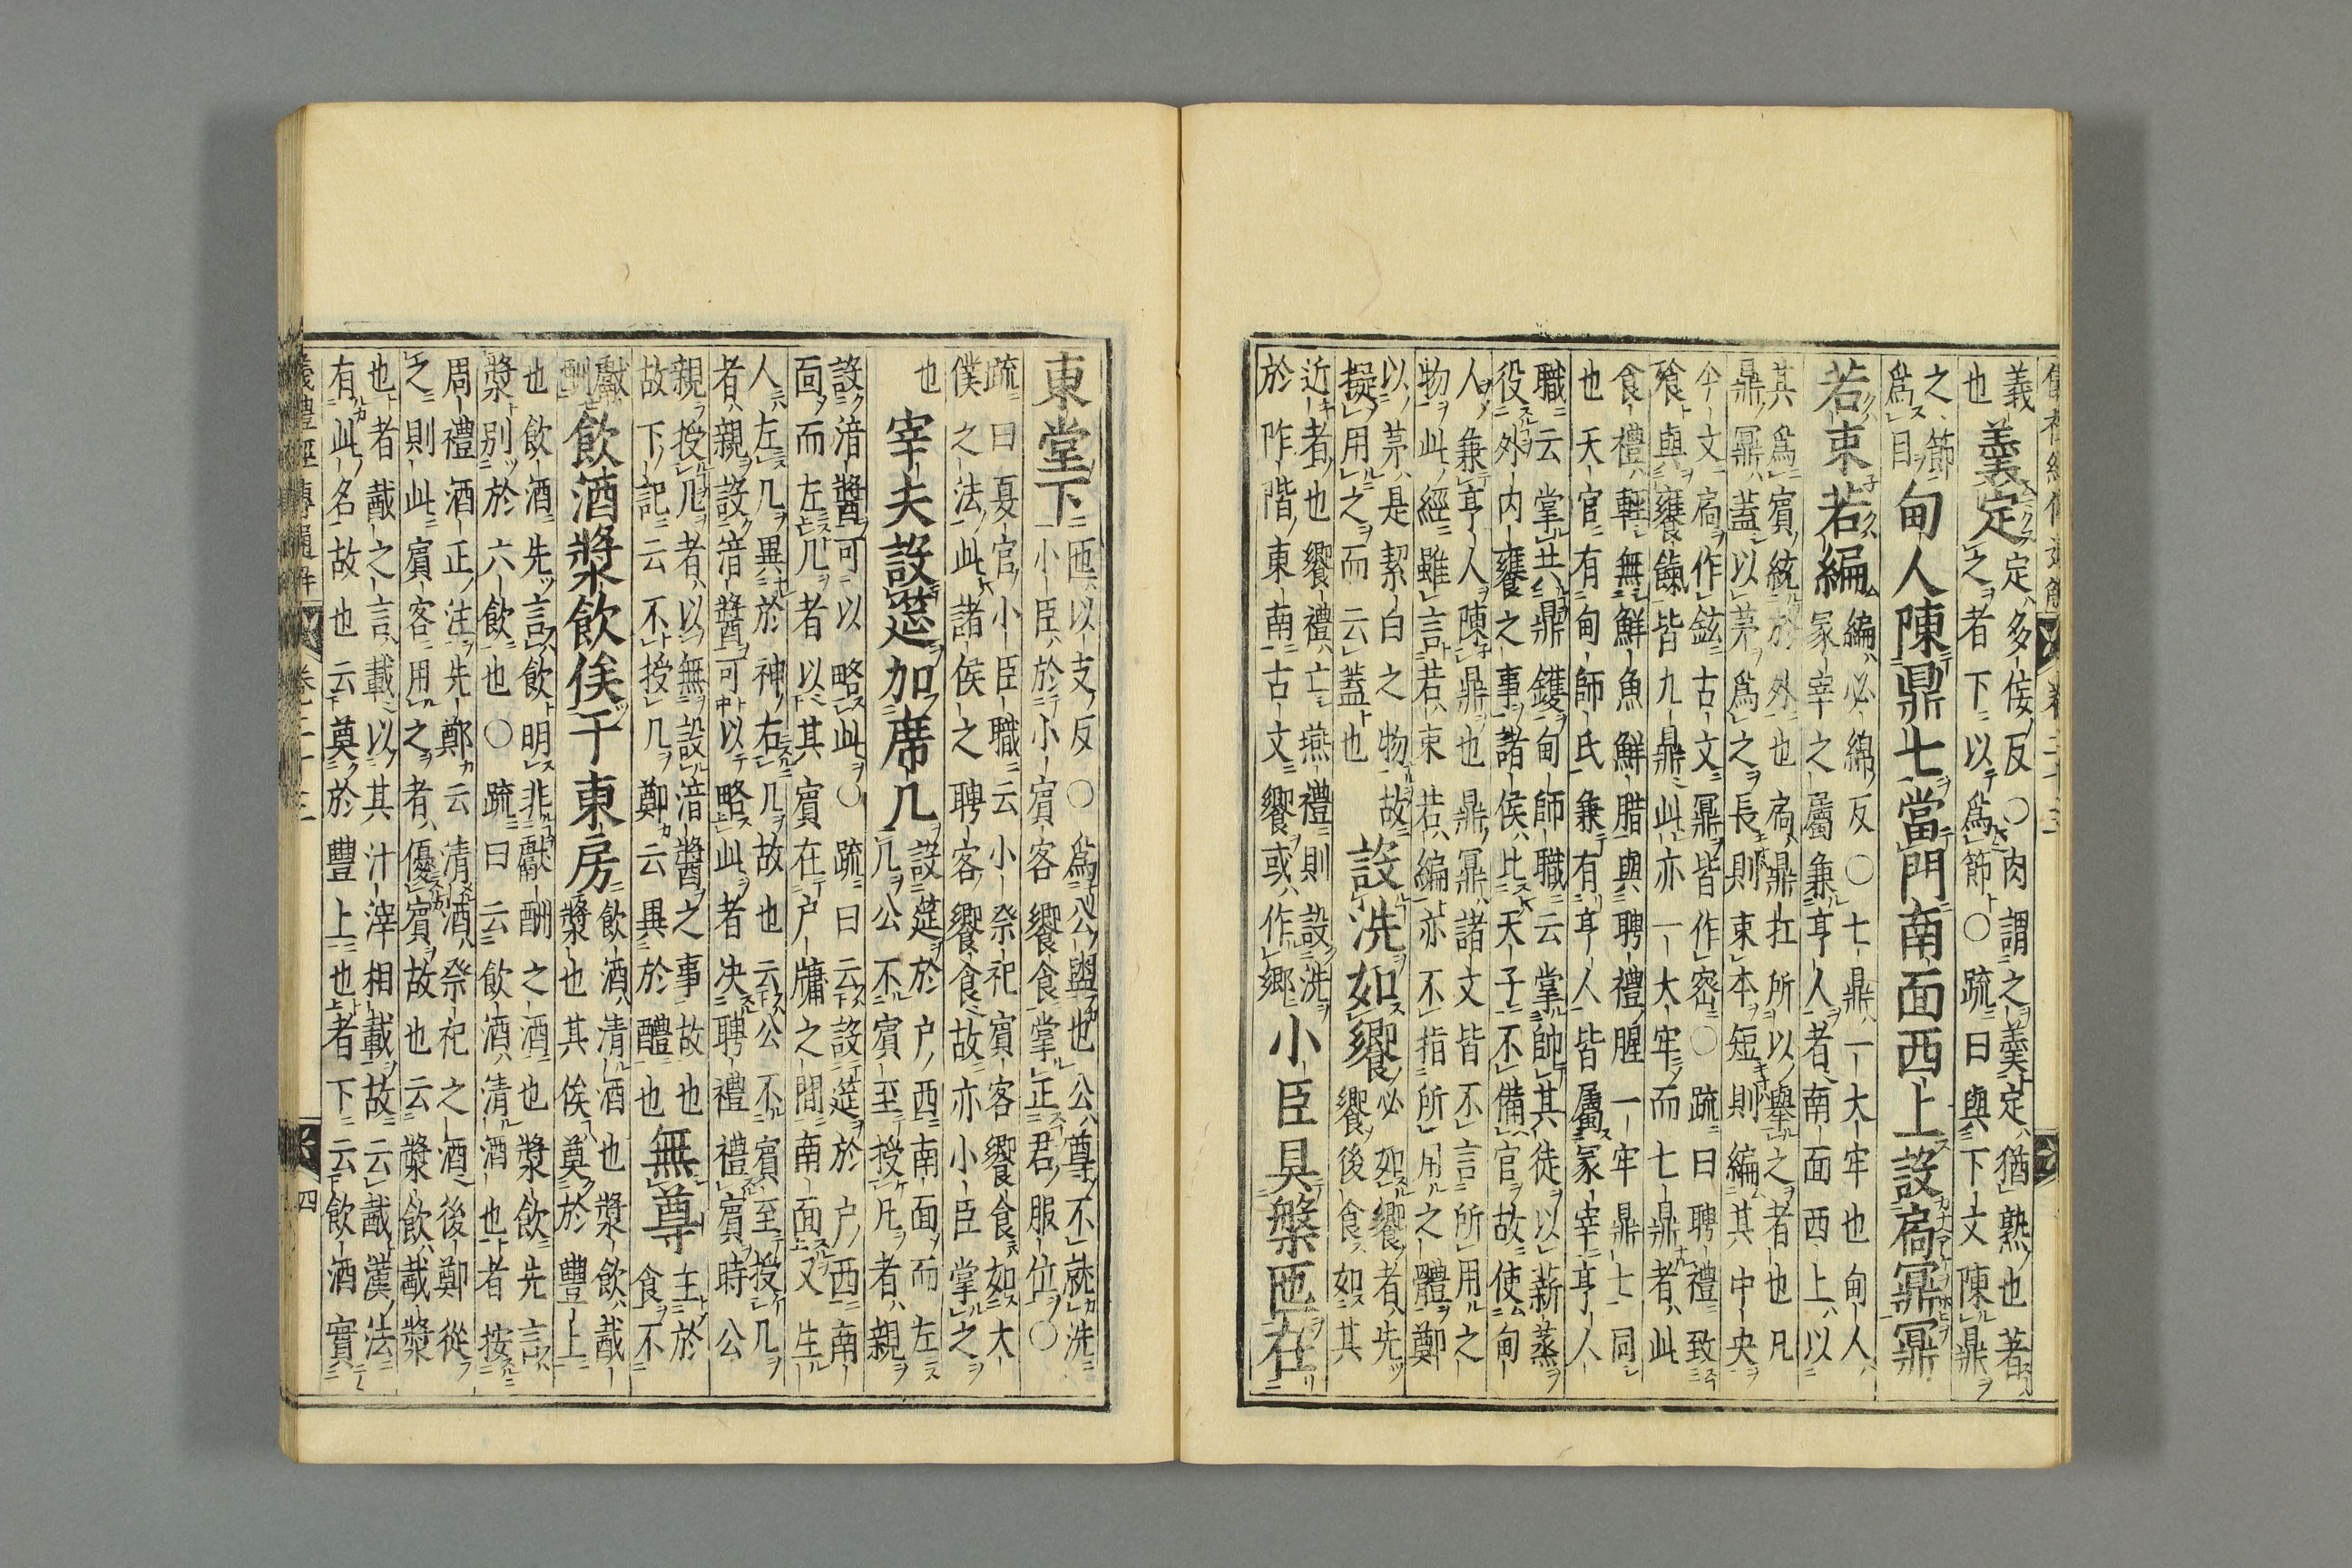 儀禮經傳通解 卷二十三
義
也
羹定
定多佞反○肉謂之羹定猶熟也著
之者下以爲節○疏曰與下文陳鼎
之節
爲目
甸人陳鼎七當門南面西上設扃鼏鼏
若束若編
編必綿反○七鼎一大牢也甸人
冢宰之屬兼亨人者南面西上以
其爲賓統於外也扃鼎扛所以舉之者也凡
鼎鼏蓋以茅爲之長則束本短則編其中央
今文扃作鉉古文鼏皆作密○疏曰聘禮致
飧與饔餼皆九鼎此亦一大牢而七鼎者此
食禮輕無鮮魚鮮腊與聘禮腥一牢鼎七同
也天官有甸師氏兼有亨人皆屬冢宰亨人
職云掌共鼎鑊甸師職云掌帥其徒以薪蒸
役外内饔之事諸侯比天子不備官故使甸
人兼亨人陳鼎也鼎鼏諸文皆不言所用之
物此經雖言若束若編亦不指所用之體鄭
以茅是絜白之物故
擬用之而云蓋也
設洗如饗
必如饗者先
饗後食如其
近者也饗禮亡燕禮則設洗
於阼階東南古文饗或作鄉
小臣具槃匜在
東堂下
匜以支反○爲公盥也公尊不就洗
小臣於小賓客饗食掌正君服位○
疏曰夏官小臣職云小祭祀賓客饗食如大
僕之法此諸侯之聘客饗食故亦小臣掌之
也
宰夫設筵加席几
設筵於户西南面而左
几公不賓至授几者親
設湆醬可以略此○疏曰云設筵於户西南
面而左几者以其賓在户牖之間南面又生
人左几異於神右几故也云公不賓至授几
者親設湆醬可以略此者决聘禮禮賓時公
親授几者以無設湆醬之事故也
故下記云不授几鄭云異於醴也
無尊
主於
食不
獻
酬
飲酒漿飲俟于東房
飲酒清酒也漿飲胾
漿也其俟奠於豐上
也飲酒先言飲明非獻酬之酒也漿飲先言
漿别於六飲也○疏曰云飲酒清酒也者按
周禮酒正注先鄭云清酒祭祀之酒後鄭從
之則此賓客用之者優賓故也云漿飲胾漿
也者胾之言載以其汁滓相載故云胾漢法
有此名故也云奠於豐上也者下云飲酒實
儀禮經傳通解 卷二十三 四